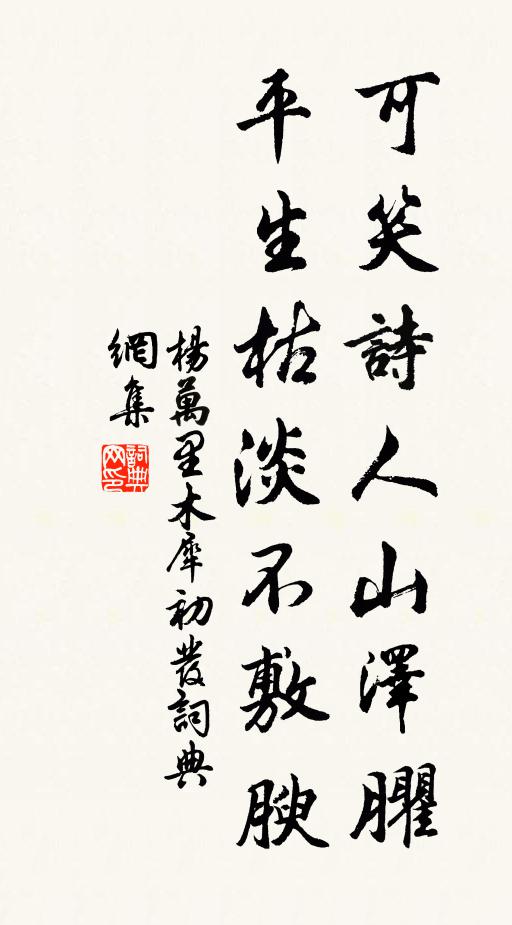 可笑詩人山澤臞
平生枯淡不敷腴
楊萬里木犀初發詞典
網集
詞典
网印